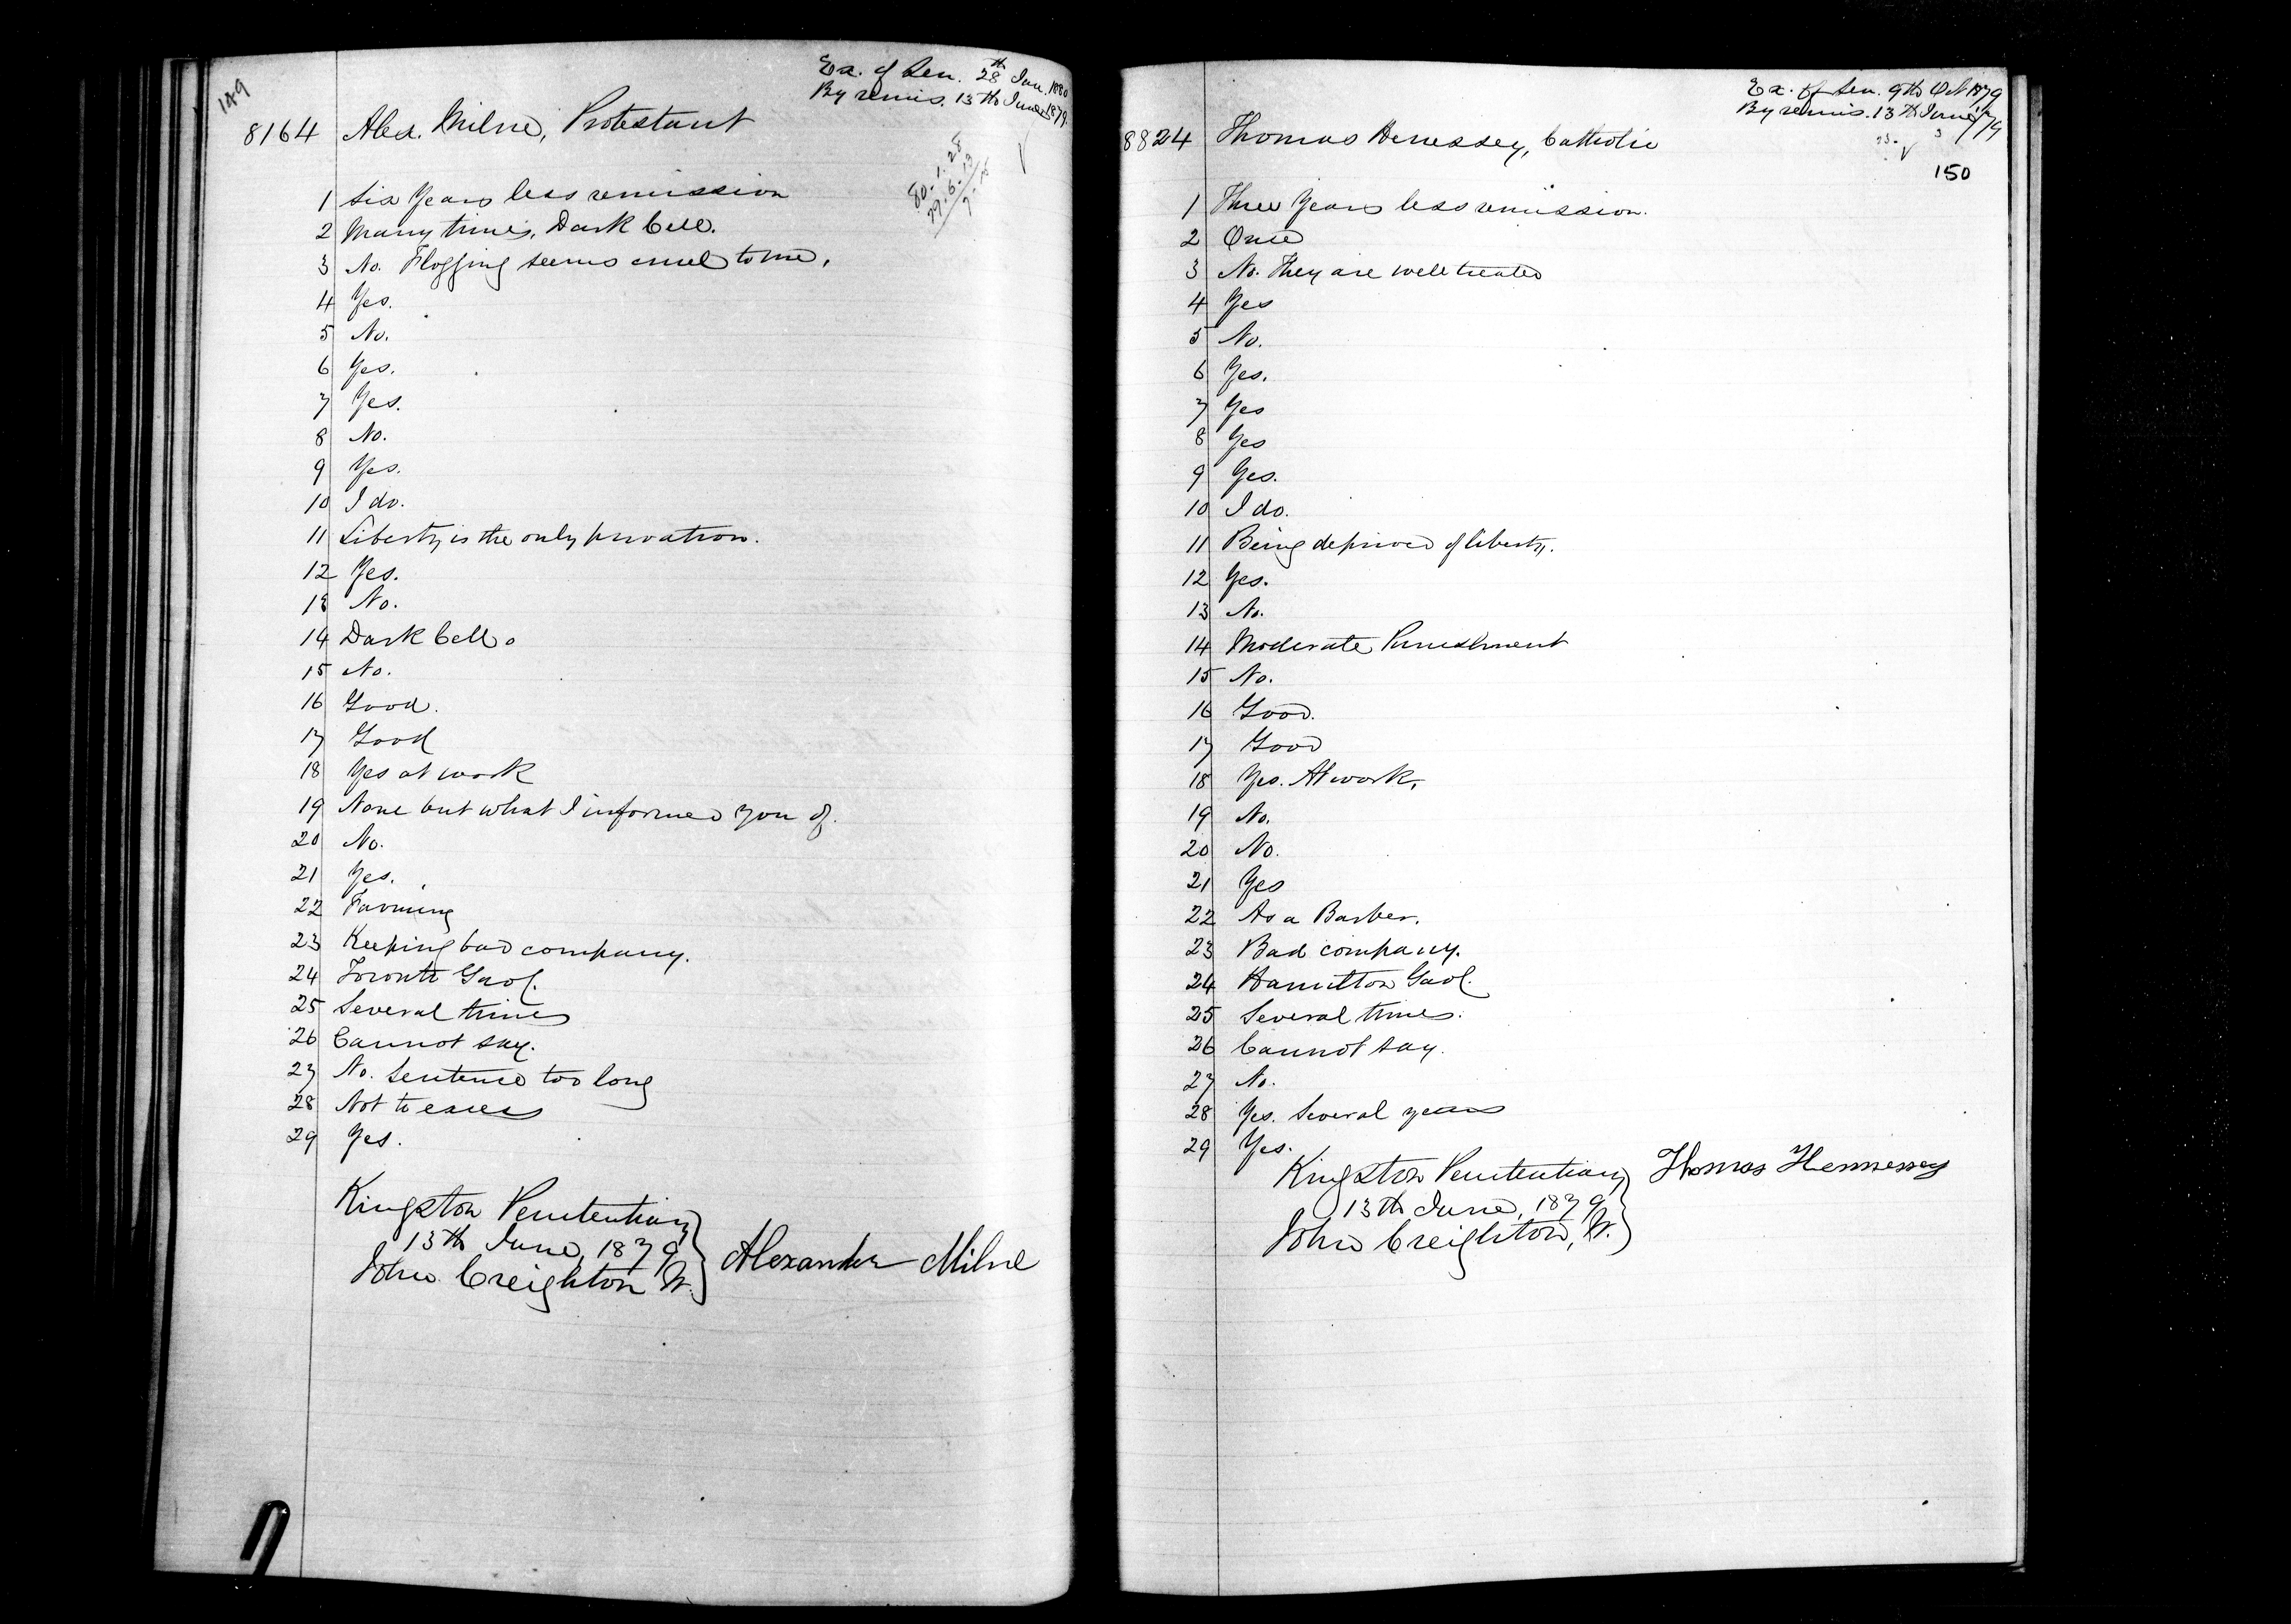 149
Ex. of Sen. 28th Jan. 1880
By remis. 13th June 1879
8164 Alex. Milne, Protestant
80. 1. 28
79. 6. 13
7. 15
1 Six Years less remission
2 Many times, Dark Cell.
3 No. Flogging seems cruel to me.
4 Yes.
5 No.
6 Yes.
7 Yes.
8 No.
9 Yes.
10 I do.
11 Liberty is the only privation.
12 Yes.
13 No.
14 Dark Cell.
15 No.
16 Good.
17 Good
18 Yes at work
19 None but what I informed you of.
20 No.
21 Yes.
22 Farming
23 Keeping bad company.
24 Toronto Gaol.
25 Several times
26 Cannot say.
27 No. Sentence too long
28 Not to excess
29 Yes.
Kingston Penitentiary
13th June, 1879
John Creighton W.
Alexander Milne
Ex. of Sen. 9th Oct 1879
By remis. 13th June/79
8824 Thomas Henessey, Catholic
150
1 Three Years less remission.
2 Once
3 No. They are well treated
4 Yes
5 No.
6 Yes.
7 Yes
8 Yes
9 Yes.
10 I do.
11 Being deprived of liberty.
12 Yes.
13 No.
14 Moderate Punishment
15 No.
16 Good.
17 Good
18 Yes. At work.
19 No.
20 No.
21 Yes
22 As a Barber.
23 Bad company.
24 Hamilton Gaol.
25 Several times.
26 Cannot say.
27 No.
28 Yes. Several years
29 Yes.
Kingston Penitentiary
13th June, 1879
John Creighton, W.
Thomas Hennessey